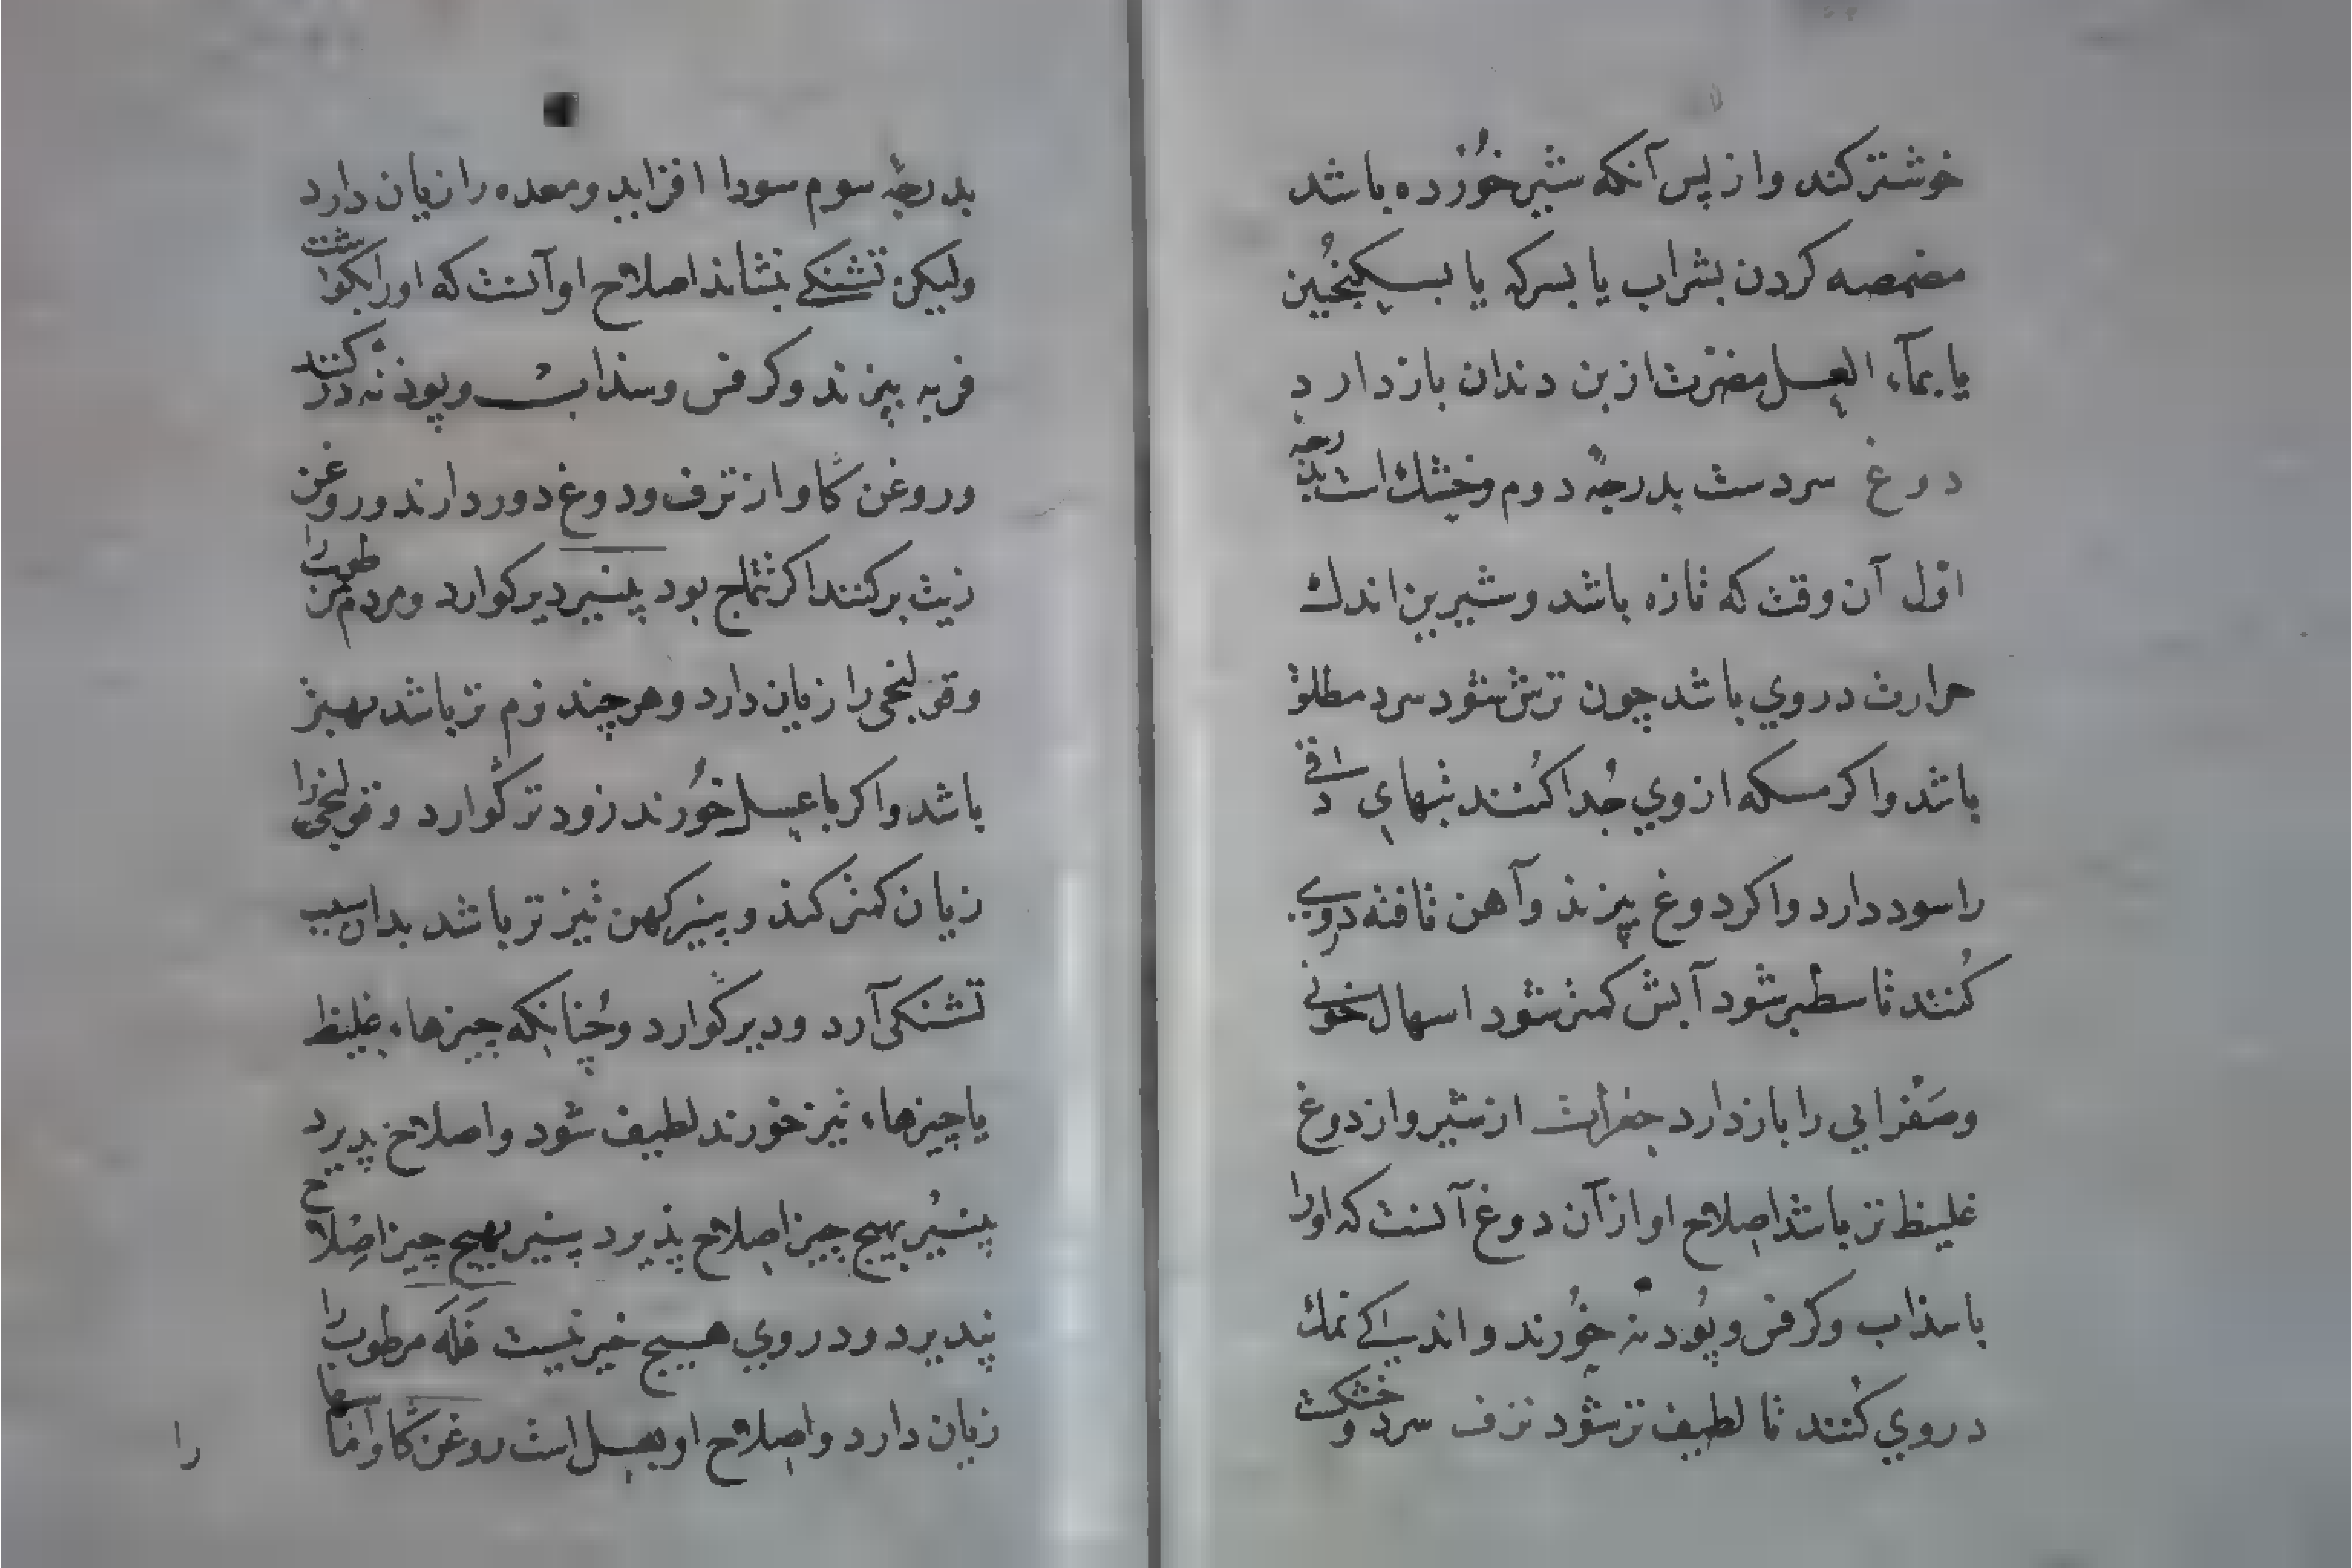 خوشترکند واز پس آنکه شیر خُورده باشد
مضمصه کردن بشراب یا بسرکه یا بسکنجُبین
یا بمآء العسل مضرت از بن دندان بازدارد
دوغ سردست بدرجهٔ دوم وخشك است بدرجهٔ
اوّل آن وقت که تازه باشد وشیرین اندك
حرارت در وي باشد چون ترش شود سرد مطلق
باشد واکر مسکه از وي جُدا کُنند تبهاي دقی
را سود دارد واکر دوغ بپزند وآهن تافته در وي
کُنند تا سطبر شود آبش کمتر شود اسهال خونی
وصَفرایی را بازدارد جغرات از شیر واز دوغ
غلیظ تر باشد اصلاح او از آن دوغ آنست که اورا
با سذاب وکرفس وپُودنه خُورند واندکی نمك
در وي کُنند تا لطیف تر شود ترف سرد وخشکست
بدرجهٔ سوم سودا افزاید ومعده را زیان دارد
ولیکن تشنکی بنشاند اصلاح او آنست که اورا بکوشت
فربه بپزند وکرفس وسذاب وپودنه در کنند
وروغن کاو از ترف ودوغ دور دارند وروغن
زیت برکنند اکر تتماج بود پنیر دیر کوارد ومردم مرطوب را
وقولنجی را زیان دارد وهرچند نرم تر باشد بهتر
باشد واکر با عسل خُورند زودتر کُوارد وقولنجی را
زیان کمتر کند وپنیر کهن تیزتر باشد بدان سبب
تشنکی آرد ودیر کُوارد وچُنانکه چیزهاء غلیظ
با چیزهاء تیز خورند لطیف شود واصلاح پدیرد
پنیر بهیچ چیز اصلاح پذیرد پنیر بهیچ چیز اصلاح
نپدیرد ودر وي هیچ خیر نیست فلَه مرطوب را
زیان دارد واصلاح او بعسل است روغن کاو آماسها
را